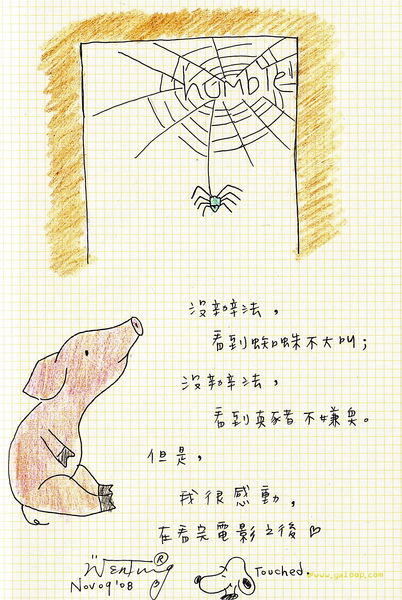 humble
沒辦法，
看到蜘蛛不大叫；
沒辦法，
看到真豬不嫌臭。
但是，
我很感動，
在看完電影之後♡
Wenting®
Nov 09 '08
Touched.